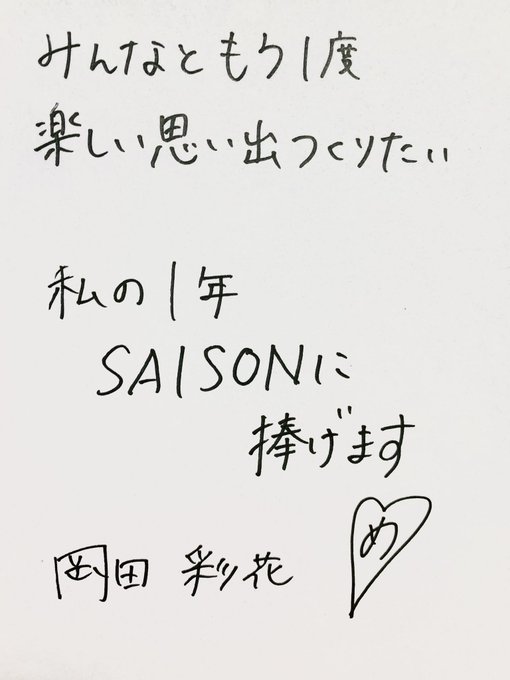 みんなともう1度
楽しい思い出つくりたい
私の1年
SAISONに
捧げます
岡田 彩花
め